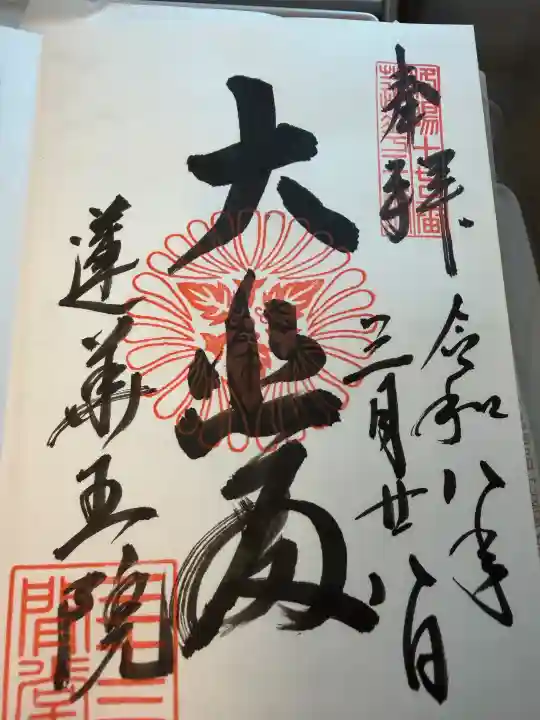 奉拝
令和八年
三月廿八日
大悲殿
蓮華王院